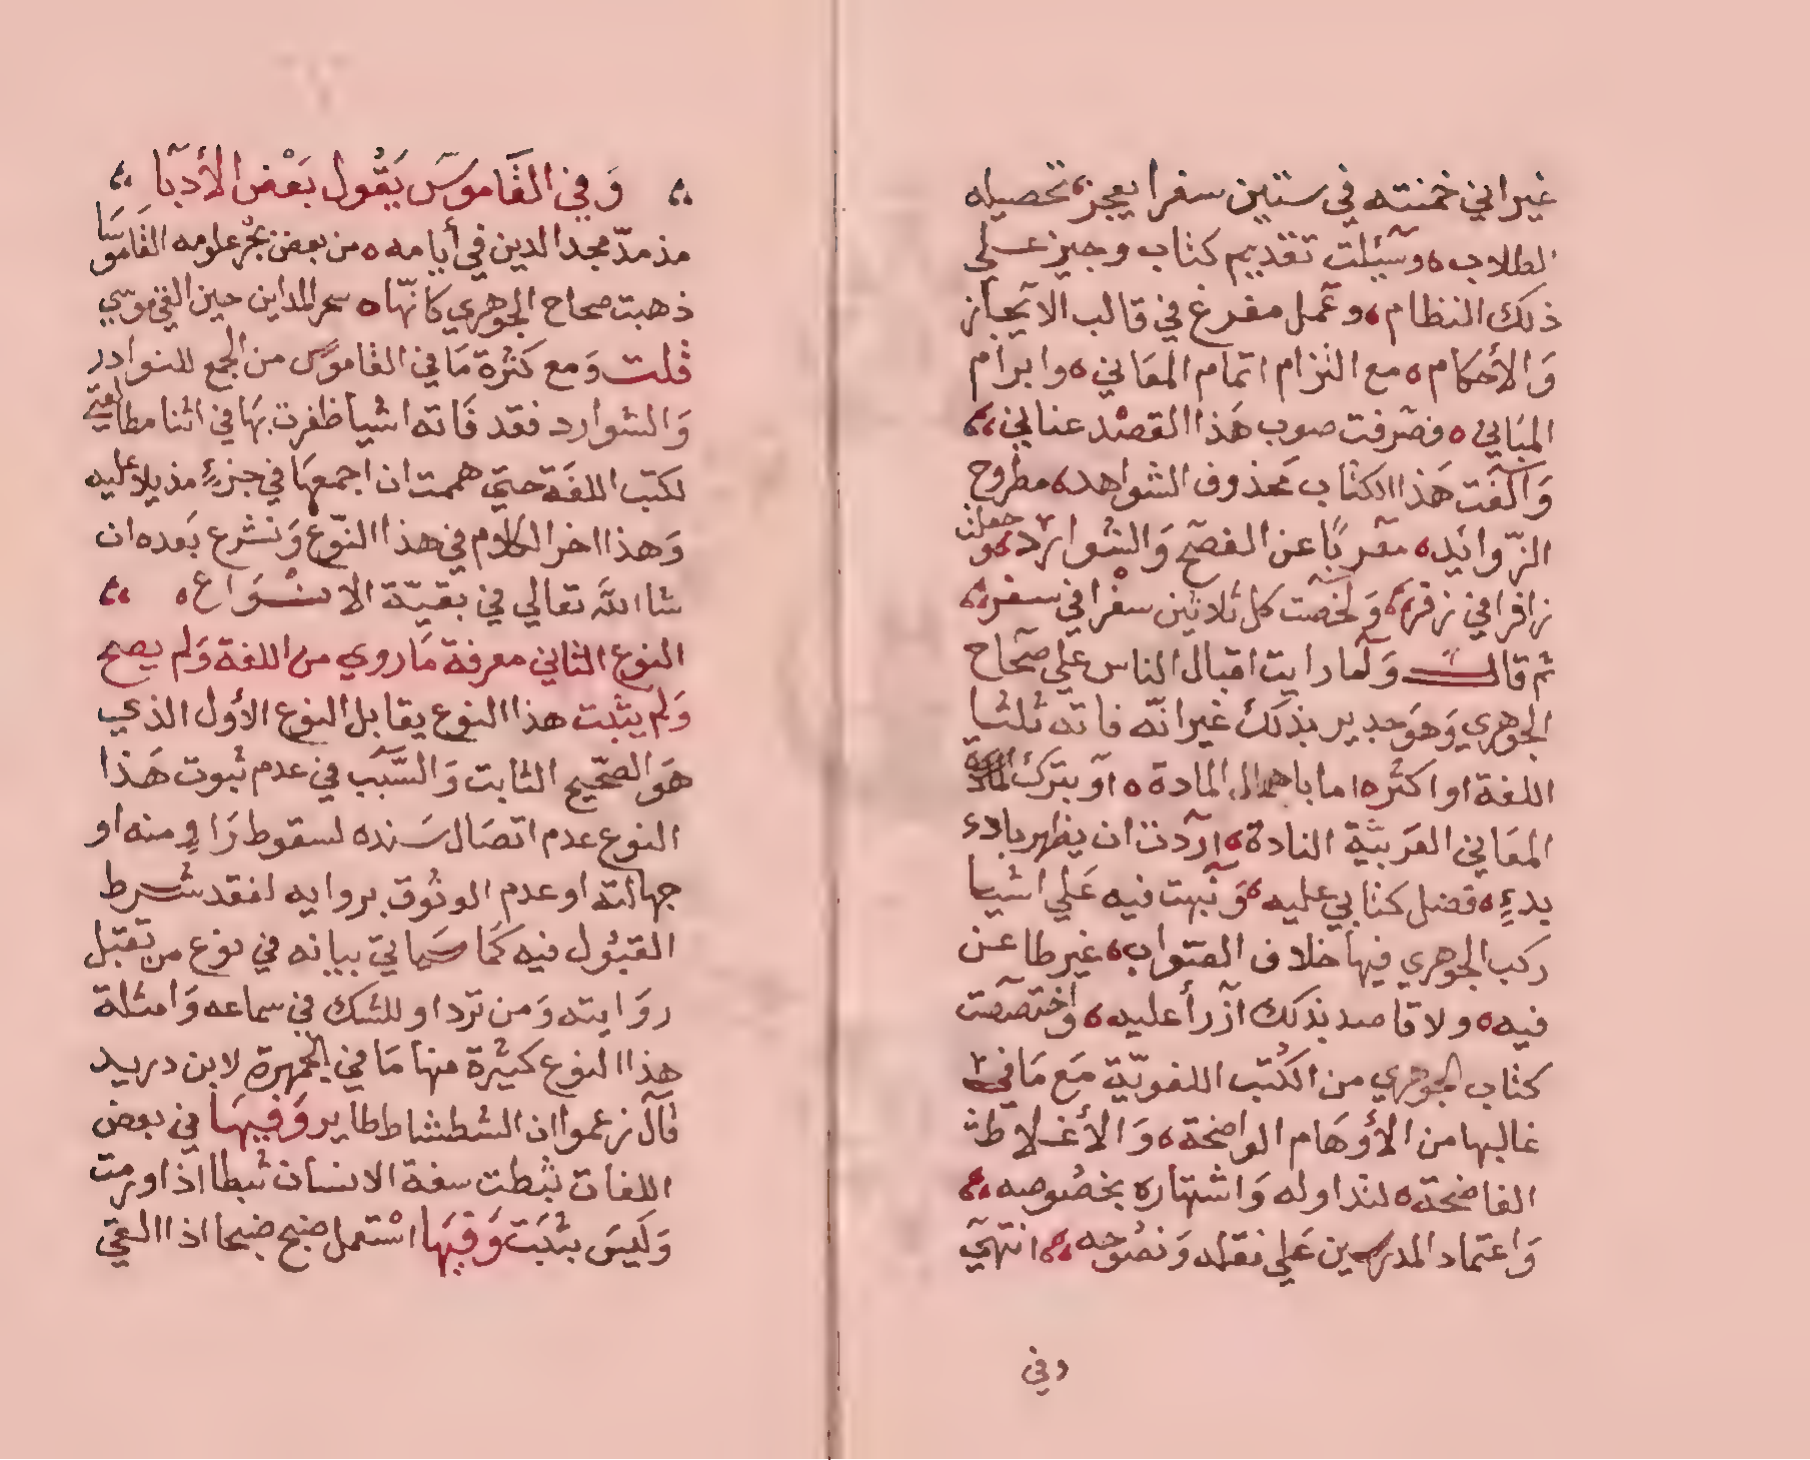 غير اني خمنته في ستين سفرا يعجز تحصيله
الطلاب، وسئلت تقديم كتاب وجيز على
ذلك النظام، وعمل مفرغ في قالب الايجاز
والأحكام، مع التزام اتمام المعاني، وابرام
المباني، فصرفت صوب هذا القصد عناني،
وألفت هذا الكتاب محذوف الشواهد، مطروح
الزوائد، معربا عن الفصح والشوارد، وجعلت
زافرا في زفر، ولخصت كل ثلاثين سفرا في سفر،
ثم قال ولما رايت اقبال الناس علي صحاح
الجوهري وهو جدير بذلك غير انه فاته ثلثا
اللغة او اكثر، اما باهمال المادة، او بترك
المعاني الغريبة النادة، اردت ان يظهر بادء
بدءٍ، فضل كتابي عليه، ونبهت فيه علي اشيا
ركب الجوهري فيها خلاف الصواب، غير طاعن
فيه، ولا قاصد بذلك ازرأ عليه، واختصصت
كتاب الجوهري من الكتب اللغوية مع ما في
غالبها من الأوهام الواضحة، والأغلاط
الفاضحة، لتداوله واشتهاره بخصوصه،
واعتماد المدرسين علي نقله ونصوصه، انتهي
وفي
وفي القاموس يقول بعض الأدبا
مذ مدّ مجد الدين في أيامه، من بعض بحر علومه القاموسا
ذهبت صحاح الجوهري كانها، سحر المداين حين القي موسي
قلت ومع كثرة ما في القاموس من الجمع للنوادر
والشوارد فقد فاته اشيا ظفرت بها في اثنا مطالعتي
لكتب اللغة حتي هممت ان اجمعها في جزءٍ مذيلا عليه
وهذا اخر الكلام في هذا النوع ونشرع بعده ان
شا الله تعالي في بقية الانواع،
النوع الثاني معرفة ما روي من اللغة ولم يصح
ولم يثبت هذا النوع يقابل النوع الأول الذي
هو الصحيح الثابت والسبب في عدم ثبوت هذا
النوع عدم اتصال سنده لسقوط راوٍ منه او
جهالته او عدم الوثوق بروايه لفقد شرط
القبول فيه كما سياتي بيانه في نوع من تقبل
روايته ومن ترد او للشك في سماعه وامثلة
هذا النوع كثيرة منها ما في الجمهرة لابن دريد
قال زعموا ان الشطشاط طاير وفيها في بعض
اللغات ثبطت سفة الانسان ثبطا اذا ورمت
وليس بثبت وفيها استعمل ضبح ضبحا اذا القي